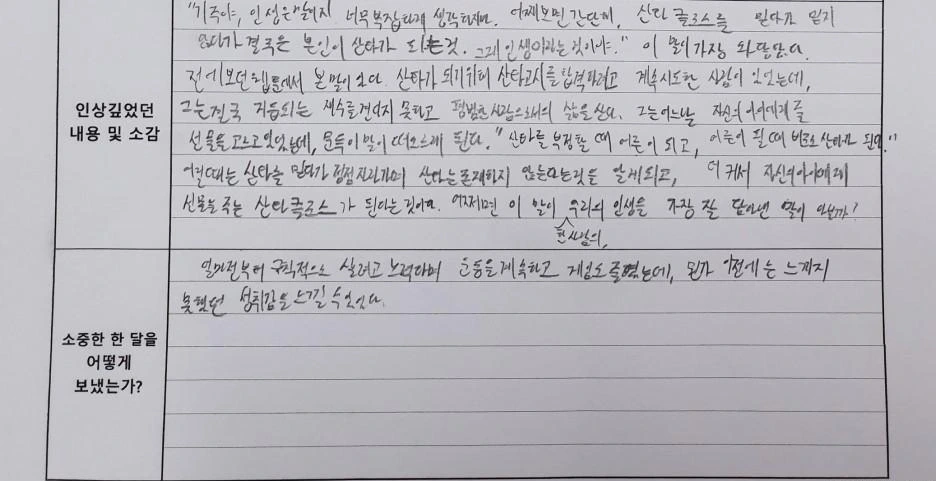 "기주야, 인생은 말이지 너무 복잡하게 생각하지마. 어찌보면 간단해, 산타 클로스를 믿다가 믿지
않다가 결국은 본인이 산타가 되는것. 그게 인생이라는 것이야." 이 말이 가장 와닿았다.
전에 보던 웹툰에서 본 말이 있다. 산타가 되기위해 산타고시를 합격하려고 계속시도한 사람이 있었는데,
그는 결국 거듭되는 재수를 견디지 못하고 평범한 사람으로써의 삶을 산다. 그는 어느날 자신의 아이에게 줄
선물을 고르고 있었는데, 문득 이 말이 떠오르게 된다. "산타를 부정할 때 어른이 되고, 어른이 될 때 비로소 산타가 된다."
어릴때는 산타를 믿다가 점점 자라가며 산타는 존재하지 않는다는것을 알게되고, 더 커서 자신의 아이에게
선물을 주는 산타클로스가 된다는 것이다. 어쩌면 이 말이 우리의 인생을 가장 잘 담아낸 말이 아닐까?
한 사람의,
인상깊었던
내용 및 소감
얼마전부터 규칙적으로 살려고 노력하며 운동을 계속하고 게임도 줄였는데, 뭔가 이전에는 느끼지
못했던 성취감을 느낄 수 있었다.
소중한 한 달을
어떻게
보냈는가?